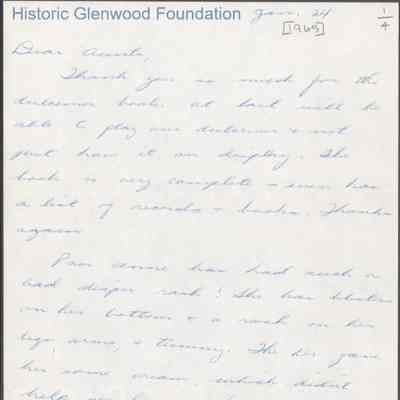 Historic Glenwood Foundation Jan. 24
[1965] 1/4
Dear Aunts,
Thank you so much for the
dulcimer book. at last will be
able to play our dulcimer & not
just have it on display. The
book is very complete & even has
a list of records & books. Thanks
again
Poor has had such a
bad diaper rash! She has blisters
on her bottom & a rash on her
legs, arms, & tummy. The Dr. gave
her some cream, which didn't
help